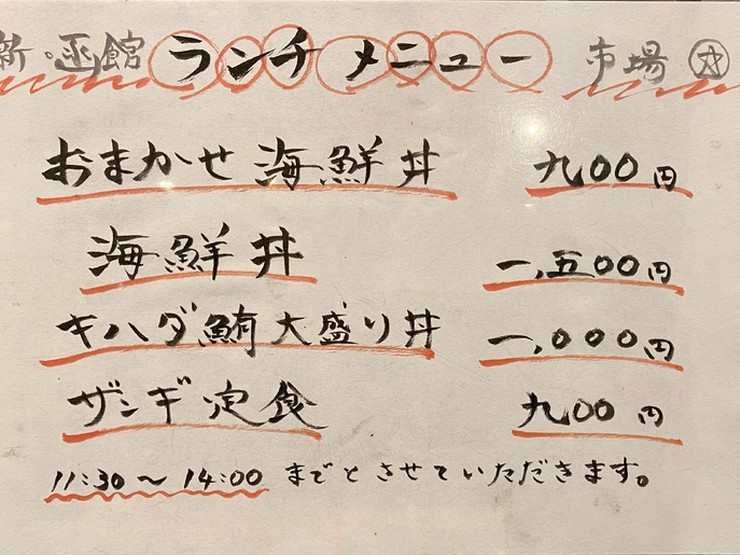 新・函館 ランチメニュー 市場
おまかせ海鮮丼 九00円
海鮮丼 一,五00円
キハダ鮪大盛り丼 一,000円
ザンギ定食 九00円
11:30〜14:00 までとさせていただきます。